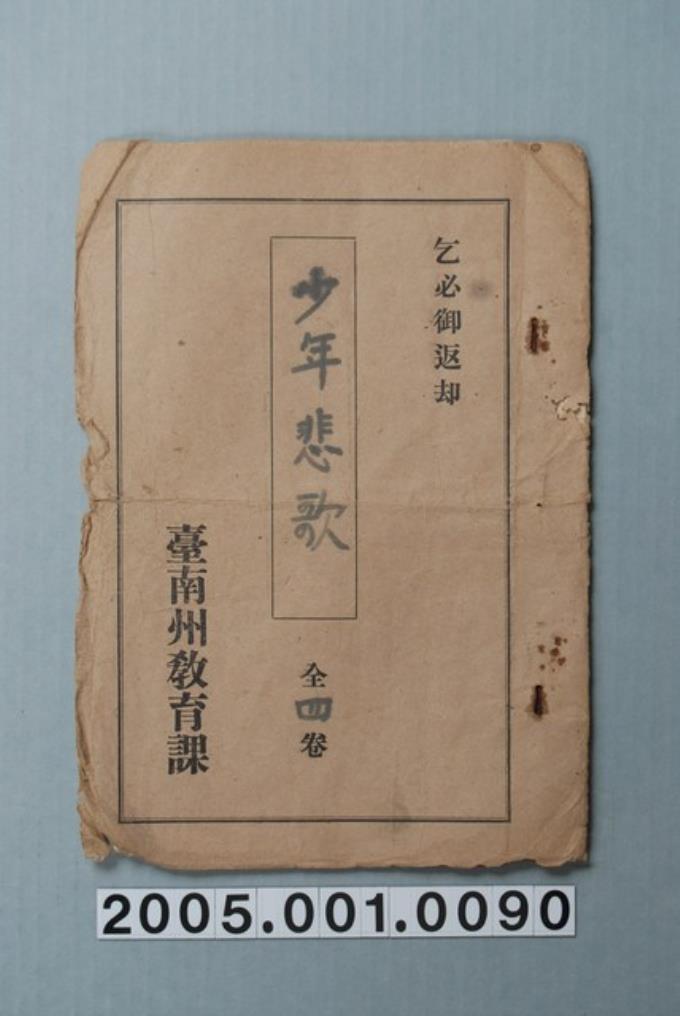 乞必御返却
少年悲歌
全四卷
臺南州教育課
2005.001.0090